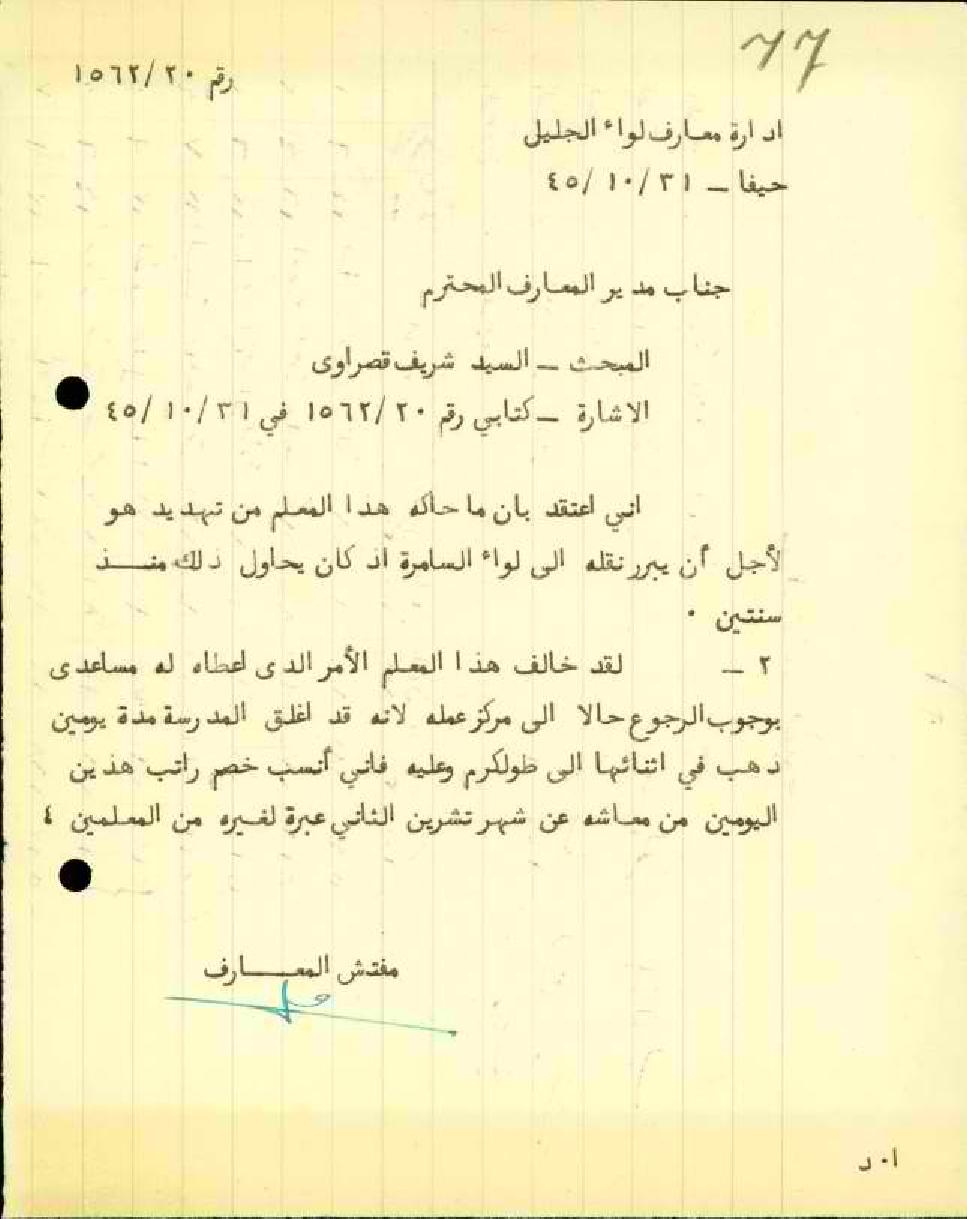 77
رقم ١٥٦٢/٢٠
ادارة معارف لواء الجليل
حيفا - ٤٥/١٠/٣١
جناب مدير المعارف المحترم
المبحث - السيد شريف قصراوى
الاشارة - كتابي رقم ١٥٦٢/٢٠ في ٤٥/١٠/٣١
اني اعتقد بان ما حاكه هذا المعلم من تهديد هو
لأجل أن يبرر نقله الى لواء السامرة اذ كان يحاول ذلك منــذ
سنتين ٠
٢ - لقد خالف هذا المعلم الأمر الذى اعطاه له مساعدى
بوجوب الرجوع حالا الى مركز عمله لانه قد اغلق المدرسة مدة يومين
ذهب في اثنائها الى طولكرم وعليه فاني أنسب خصم راتب هذين
اليومين من معاشه عن شهر تشرين الثاني عبرة لغيره من المعلمين ٤
مفتش المعــارف
ا٠د